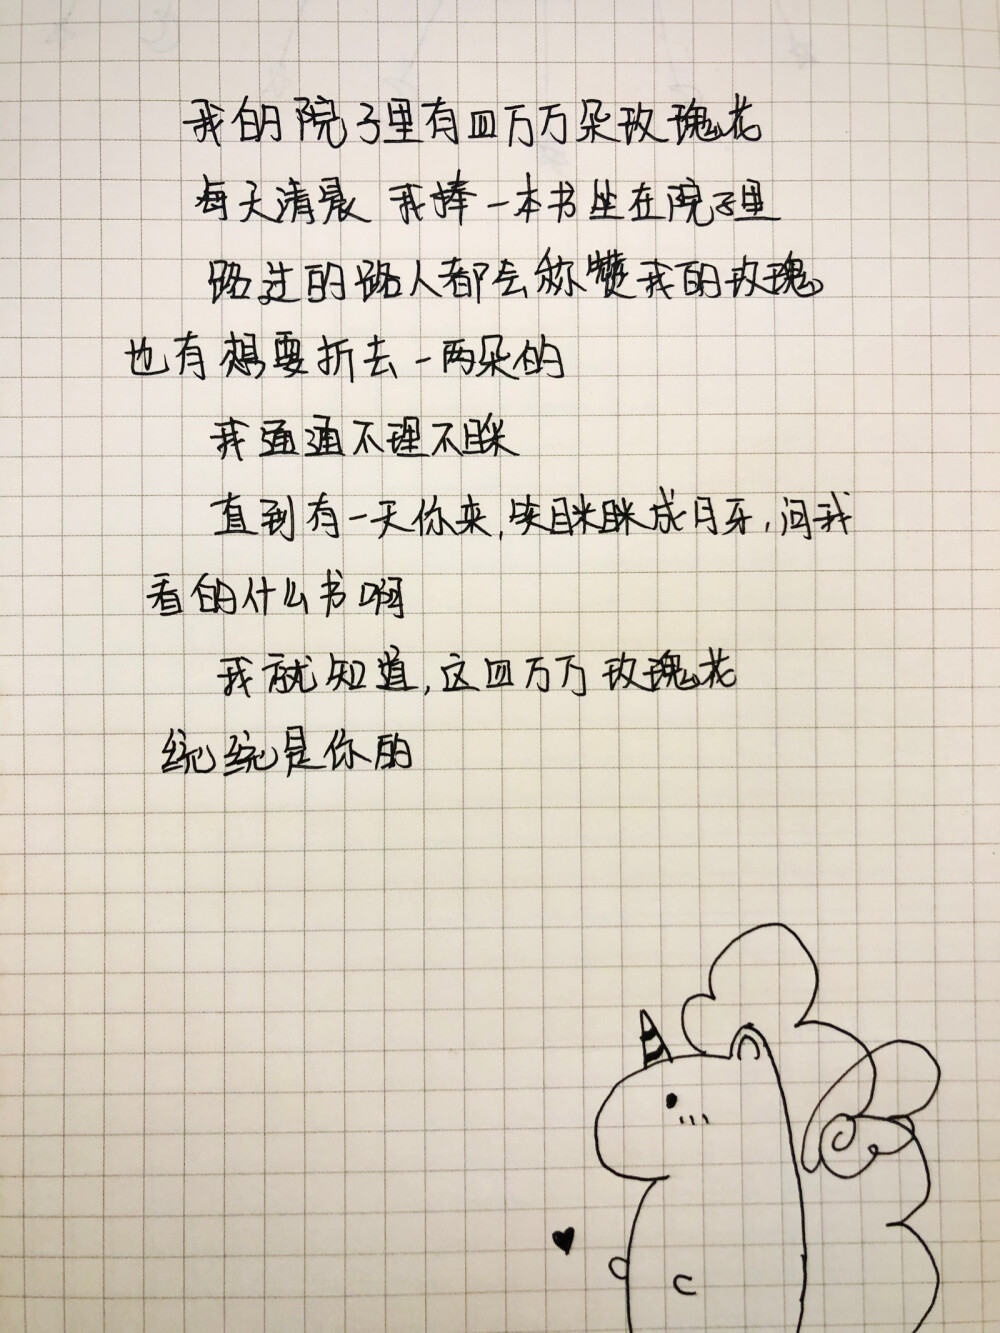 我的院子里有四万万朵玫瑰花
每天清晨 我捧一本书坐在院子里
路过的路人都会称赞我的玫瑰
也有想要折去一两朵的
我通通不理不睬
直到有一天你来,笑眯眯成月牙,问我
看的什么书啊
我就知道,这四万万玫瑰花
统统是你的